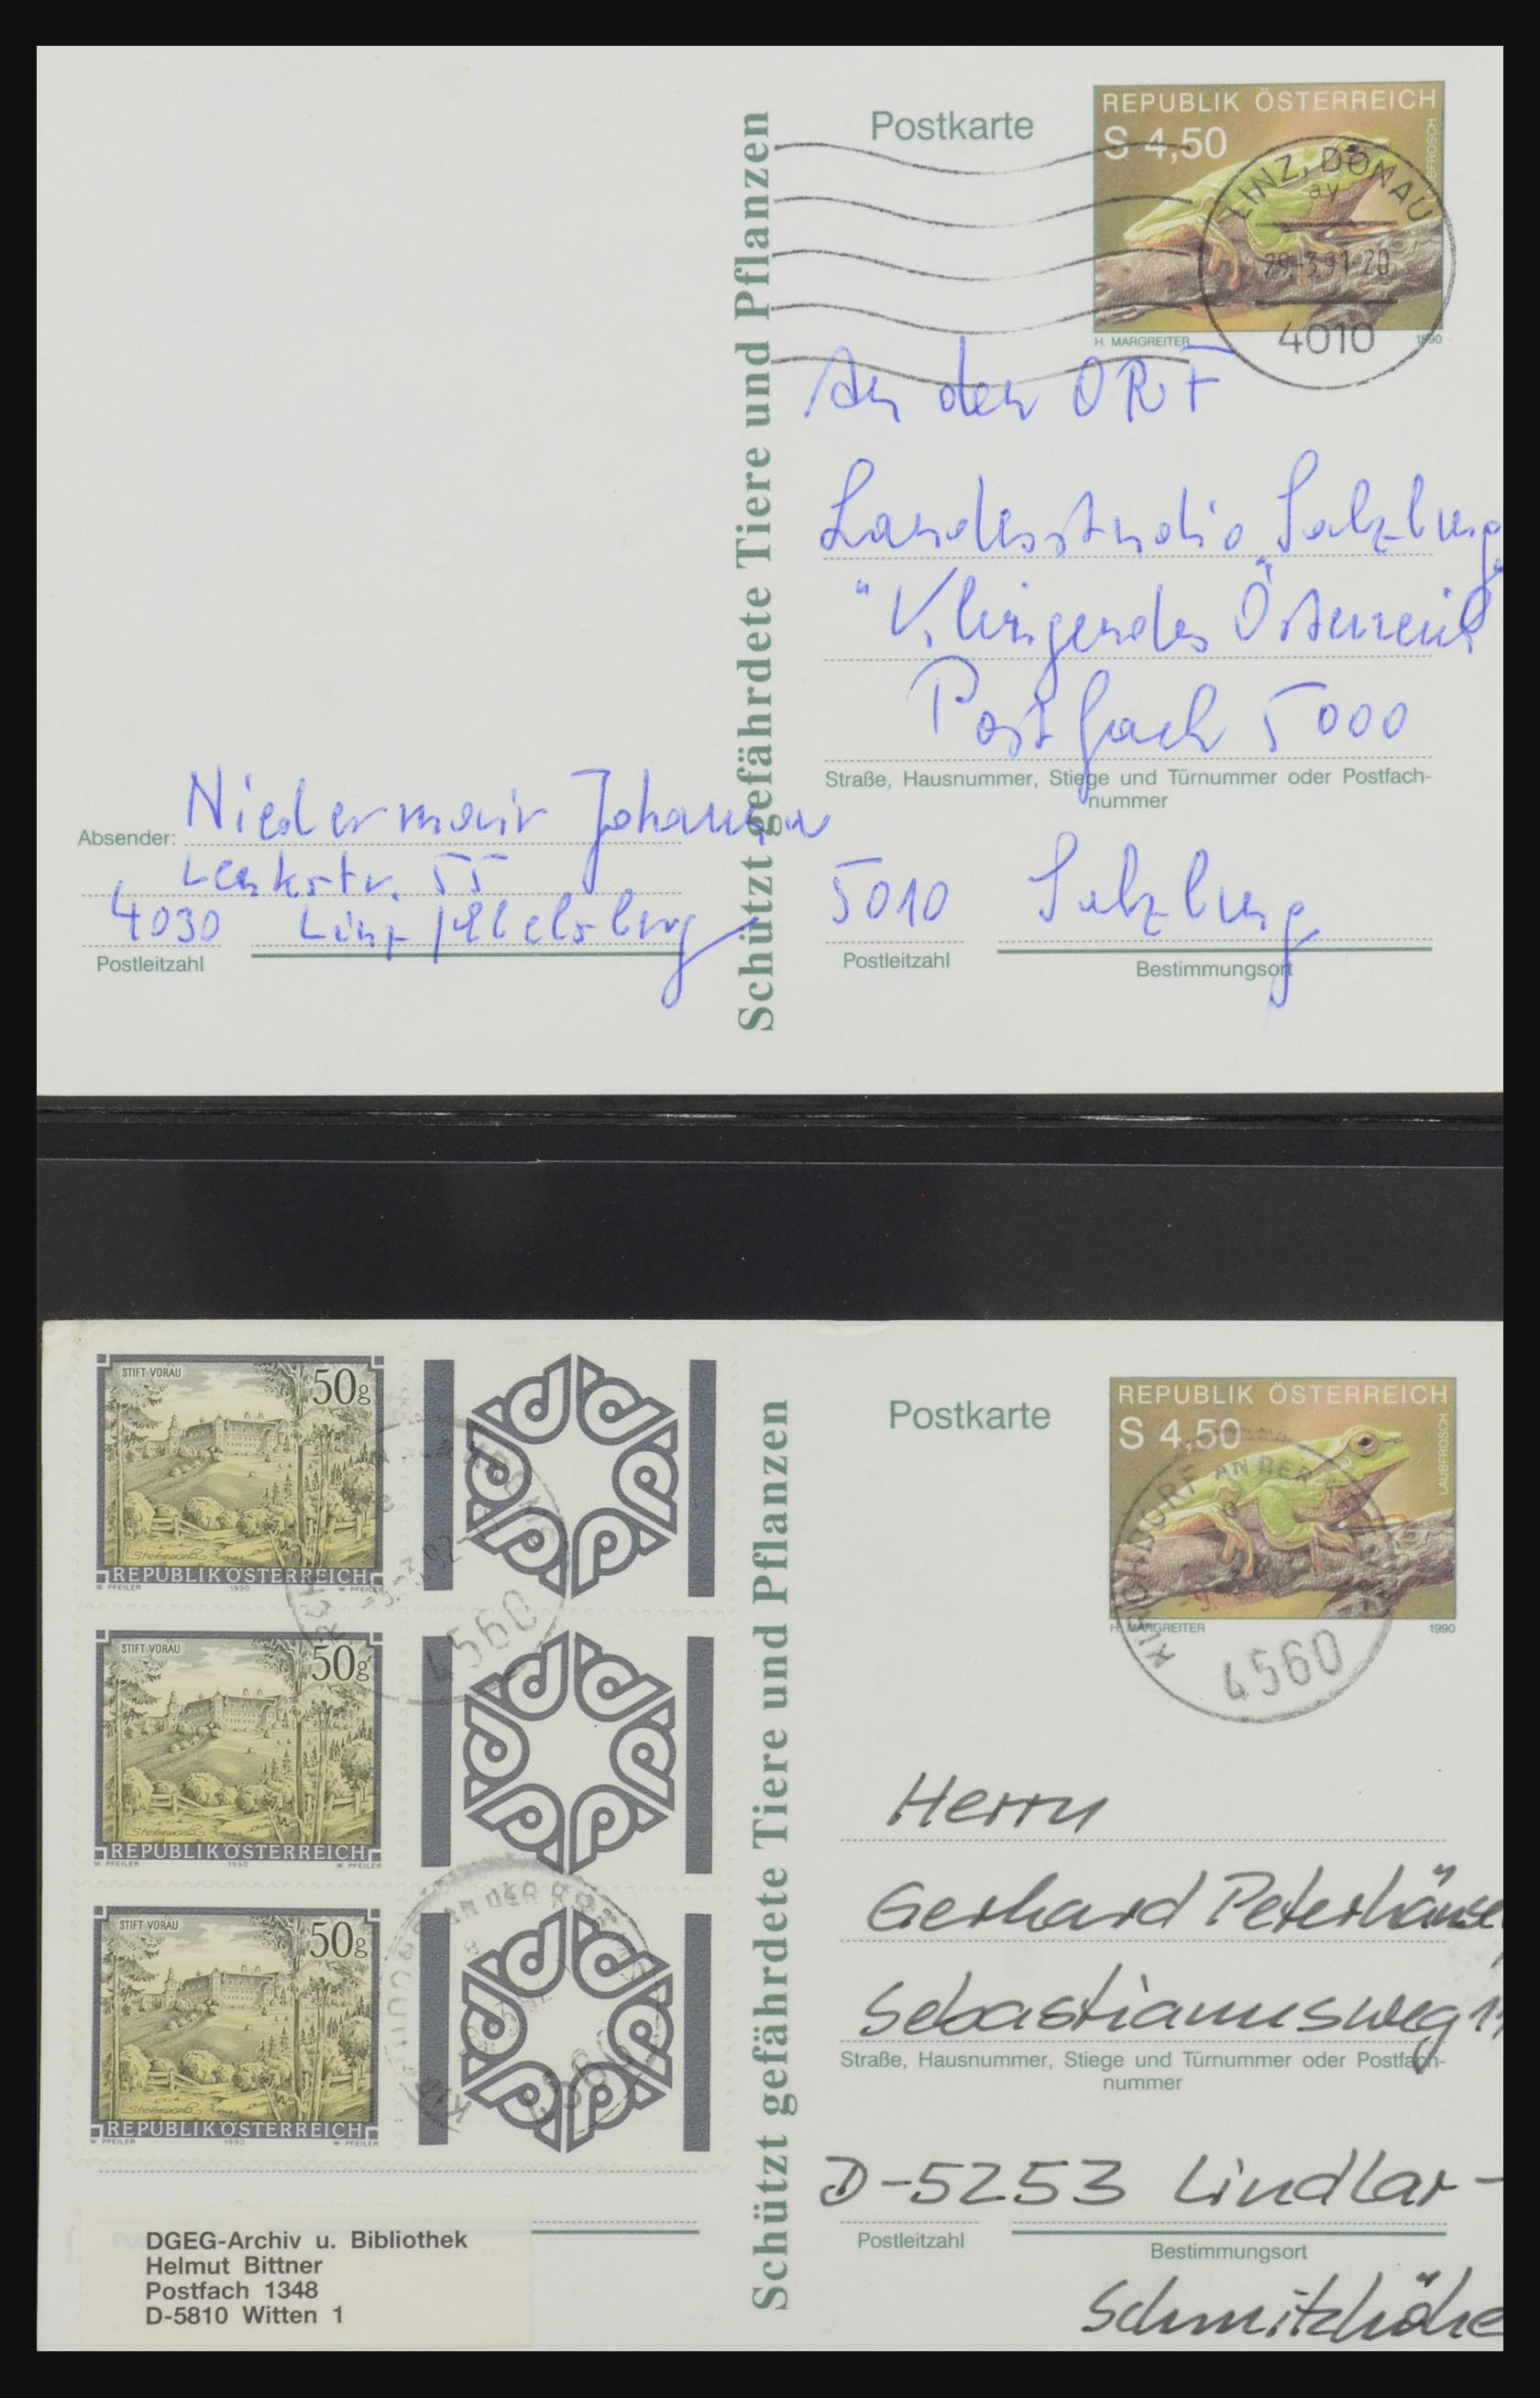 Postkarte
REPUBLIK ÖSTERREICH
S 4,50
LINZ, DONAU
ay
29.-3.91-20
4010
H. MARGREITER
1990
Schützt gefährdete Tiere und Pflanzen
An den ORF
Landesstudio Salzburg
"Klingendes Österreich"
Postfach 5000
Straße, Hausnummer, Stiege und Türnummer oder Postfach-
nummer
5010 Salzburg
Postleitzahl
Bestimmungsort
Absender: Niedermair Johann
Lenkstr. 55
4030 Linz/Ebelsberg
Postleitzahl
STIFT VORAU
50g
REPUBLIK ÖSTERREICH
W. PFEILER 1990 W. PFEILER
4560
STIFT VORAU
50g
REPUBLIK ÖSTERREICH
W. PFEILER 1990 W. PFEILER
STIFT VORAU
50g
REPUBLIK ÖSTERREICH
W. PFEILER 1990 W. PFEILER
DGEG-Archiv u. Bibliothek
Helmut Bittner
Postfach 1348
D-5810 Witten 1
Schützt gefährdete Tiere und Pflanzen
Postkarte
REPUBLIK ÖSTERREICH
S 4,50
LAUBFROSCH
KIRCHDORF AN DER
4560
H. MARGREITER
1990
Herrn
Gerhard Peterhänse
Sebastianusweg 11
Straße, Hausnummer, Stiege und Türnummer oder Postfach-
nummer
D-5253 Lindlar-
Postleitzahl
Bestimmungsort
Schmitzhöhe